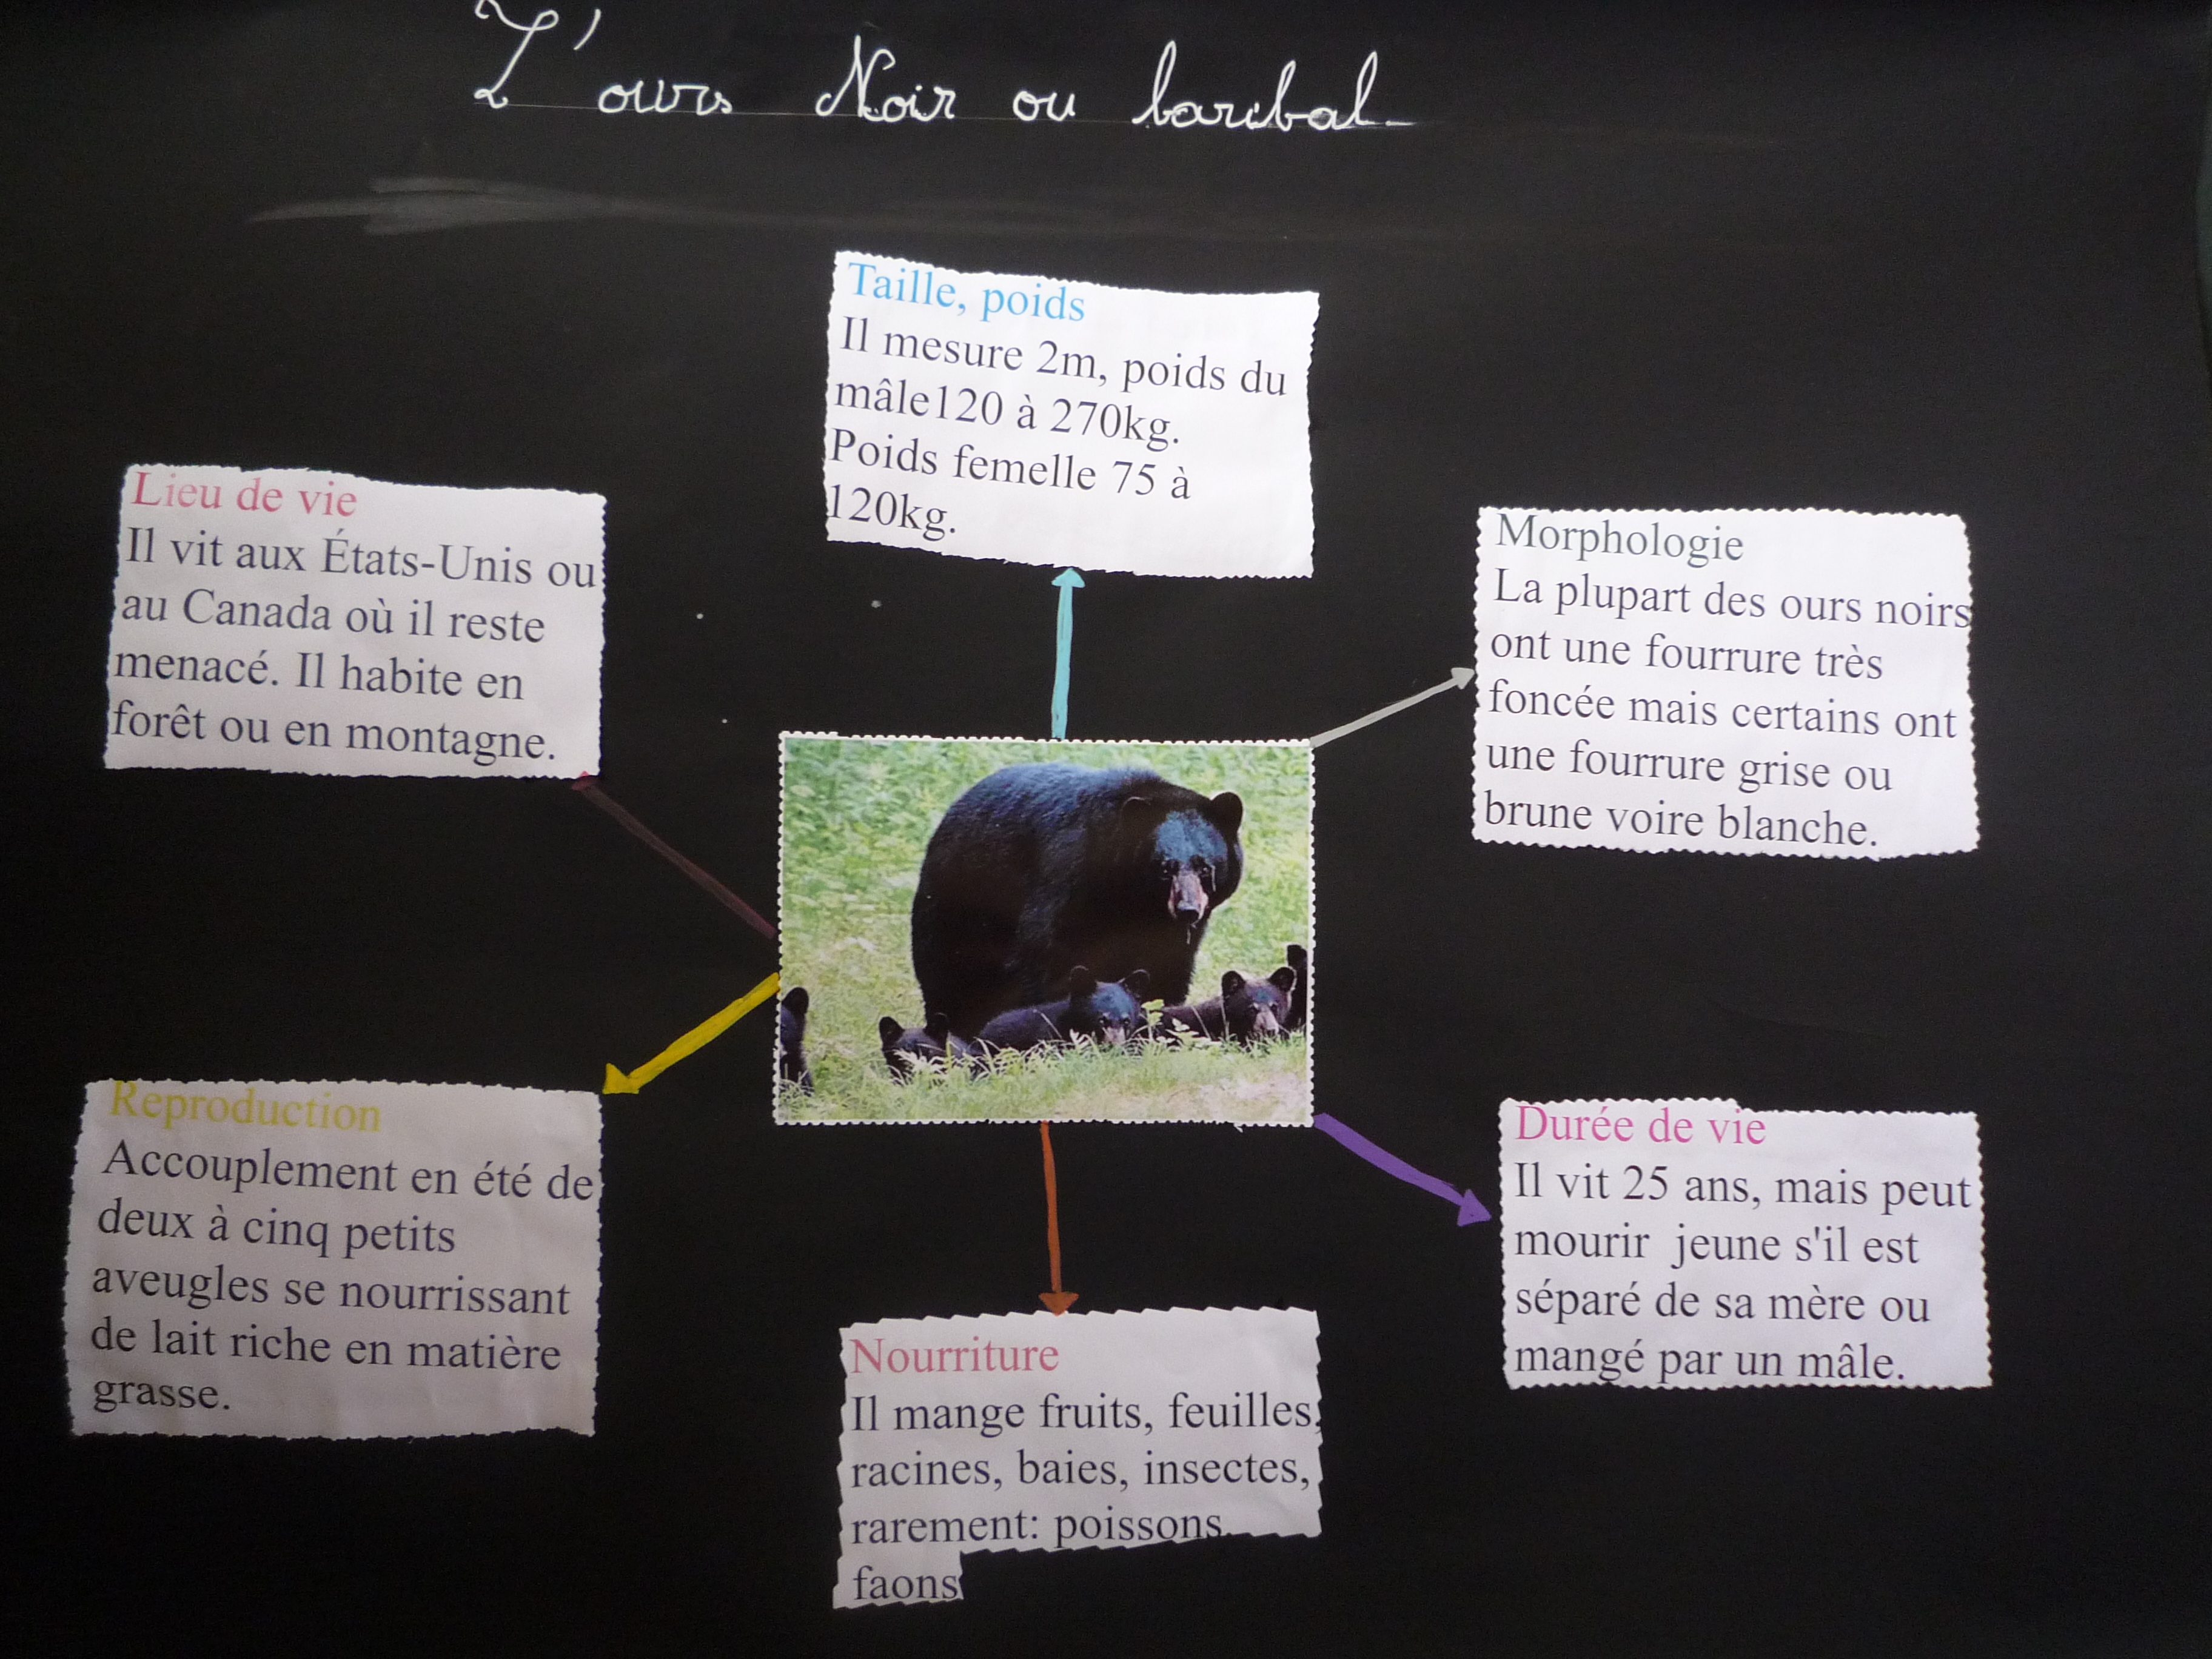 L'ours Noir ou baribal.
Taille, poids
Il mesure 2m, poids du
mâle120 à 270kg.
Poids femelle 75 à
120kg.
Lieu de vie
Il vit aux États-Unis ou
au Canada où il reste
menacé. Il habite en
forêt ou en montagne.
Morphologie
La plupart des ours noirs
ont une fourrure très
foncée mais certains ont
une fourrure grise ou
brune voire blanche.
Reproduction
Accouplement en été de
deux à cinq petits
aveugles se nourrissant
de lait riche en matière
grasse.
Durée de vie
Il vit 25 ans, mais peut
mourir jeune s'il est
séparé de sa mère ou
mangé par un mâle.
Nourriture
Il mange fruits, feuilles,
racines, baies, insectes,
rarement: poissons,
faons